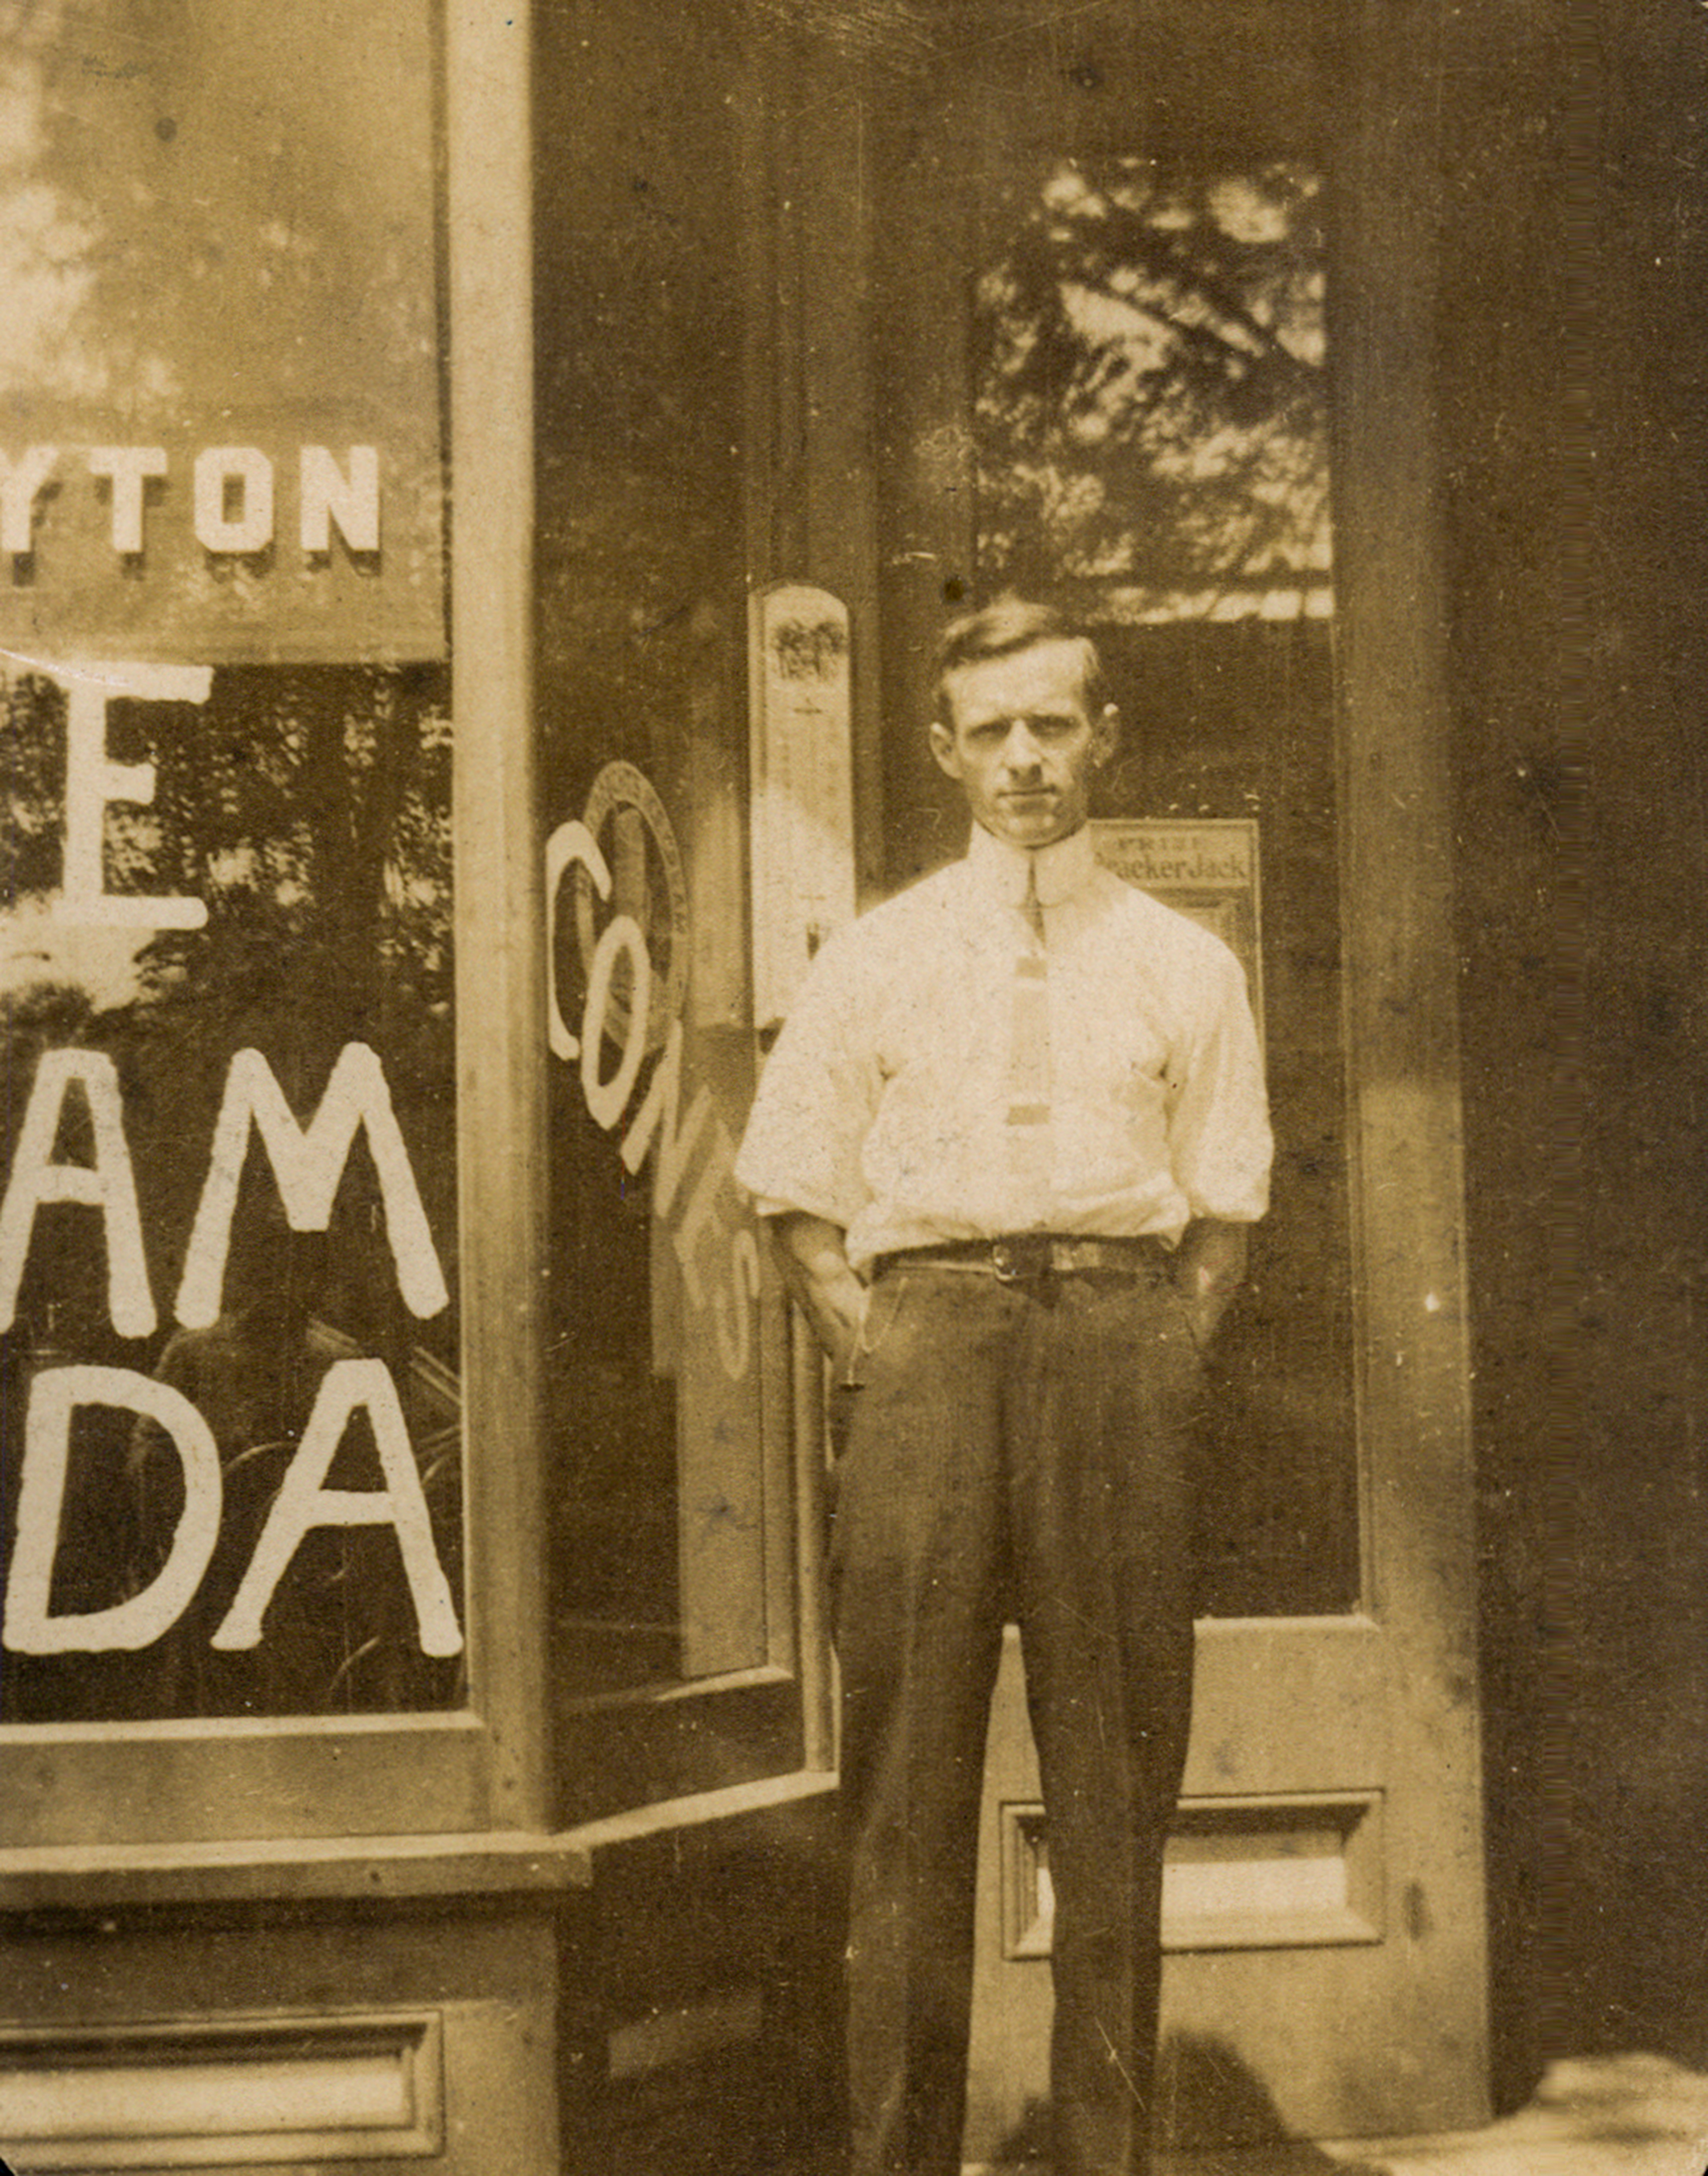 YTON
E
AM
DA
CONES
PRIZE
CrackerJack